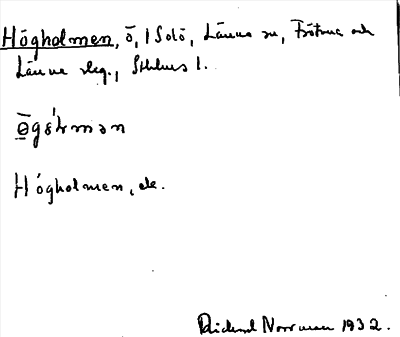 Högholmen, ö, i Solö, Länna sn, Frötuna och
Länna skg., Sthlms l.
Högholmen, ek.
Rickard Norrman 1932.